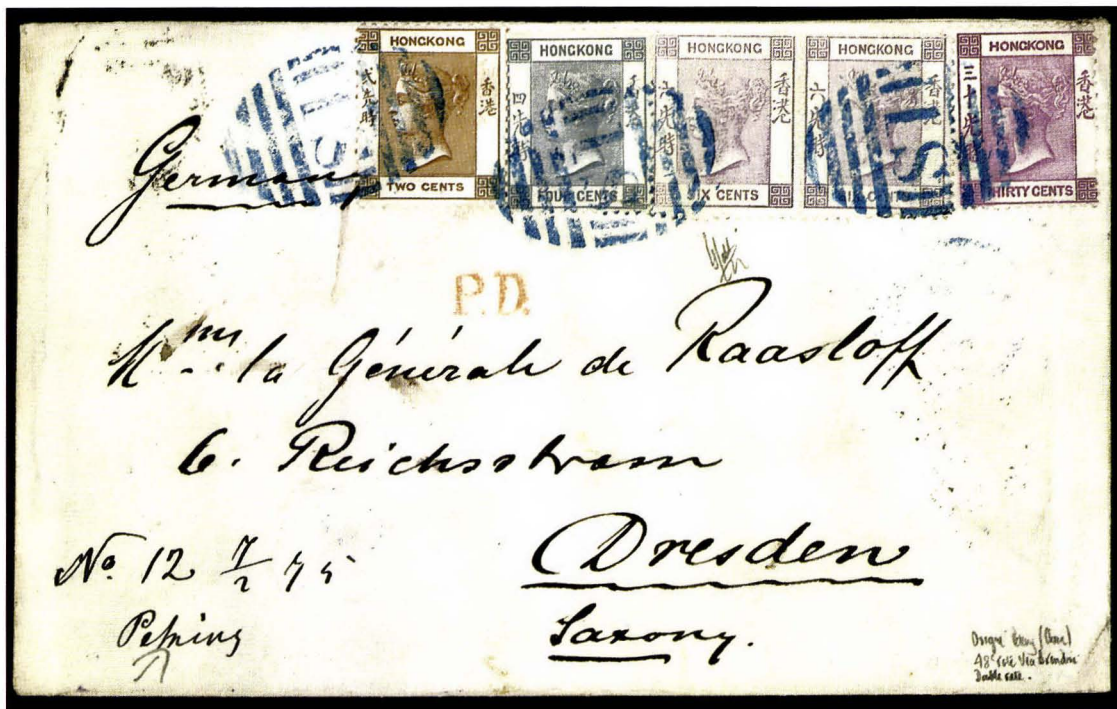 HONGKONG
香港
TWO CENTS
HONGKONG
四先時
FOUR CENTS
HONGKONG
六先時
SIX CENTS
HONGKONG
香港
六先時
HONGKONG
香港
THIRTY CENTS
Germany
P.D.
Mme la Générale de Raasloff
6. Reichsstrasse
Dresden
Saxony.
No. 12 7/2 75
Peking
48c rate Via Brindisi
Double rate.